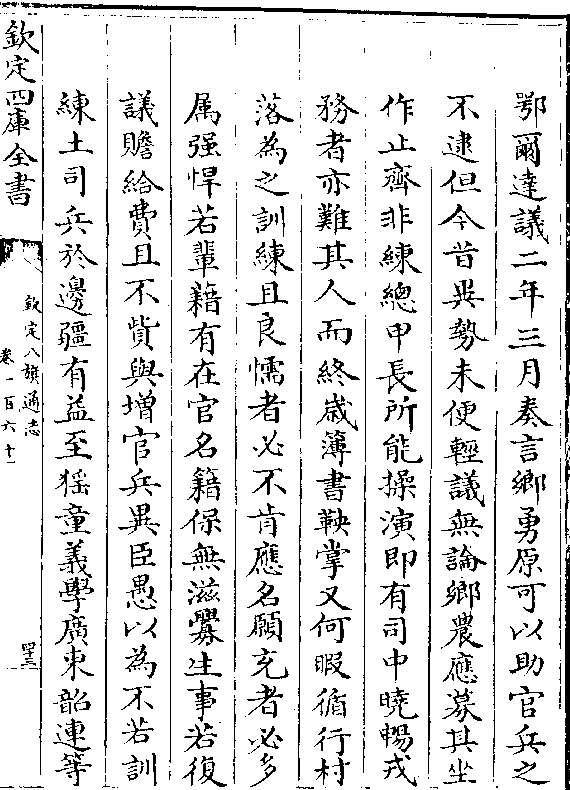 鄂爾達議二年三月奏言鄉勇原可以助官兵之
不逮但今昔異勢未便輕議無論鄉農應募其坐
作止齊非練總甲長所能操演即有司中曉暢戎
務者亦難其人而終歲簿書鞅掌又何暇循行村
落為之訓練且良懦者必不肯應名願充者必多
属强悍若輩籍有在官名籍保無滋釁生事若復
議贍給費且不貲與增官兵異臣愚以為不若訓
練土司兵於邊疆有益至猺童義學廣東韶連等
欽定四庫全書
欽定八旗通志
卷一百六十一
四十三